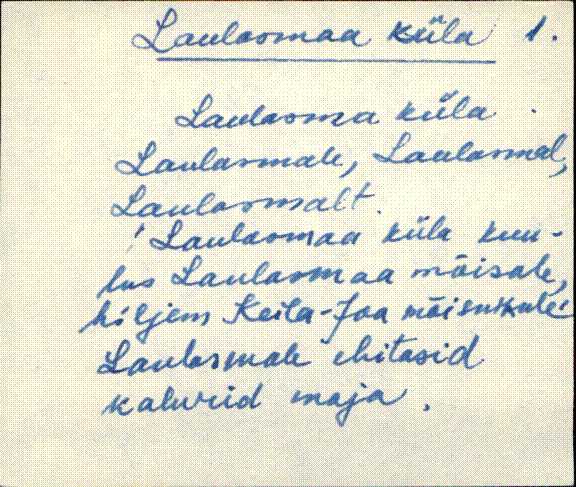 Laulasmaa küla 1.
Laulasma küla.
Laulasmale, Laulasmal,
Laulasmalt.
! Laulasmaa küla kuu-
lus Laulasmaa mõisale,
hiljem Keila-Joa mõisnikule!
Laulasmale ehitasid
kalurid maja.